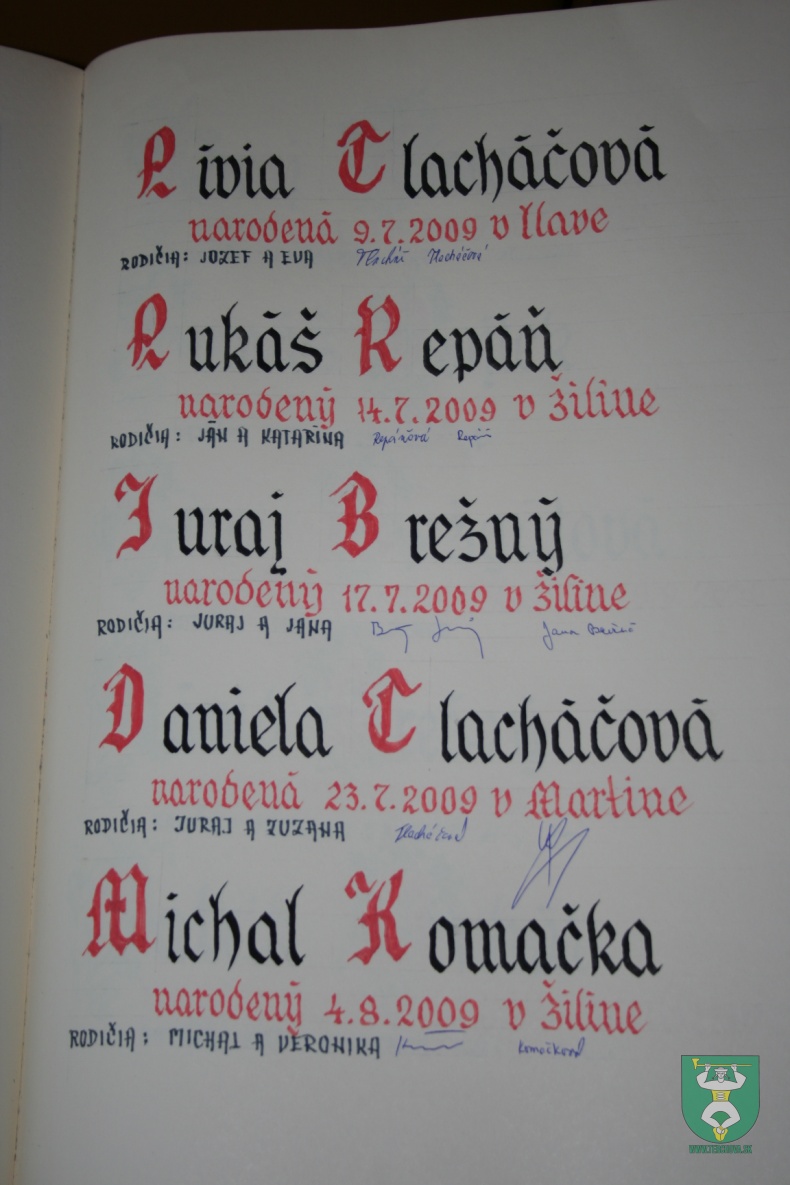 Lívia Tlacháčová
narodená 9.7.2009 v Ilave
RODIČIA: JOZEF A EVA Tlacháč Tlacháčová
Lukáš Repáň
narodený 14.7.2009 v Žiline
RODIČIA: JÁN A KATARÍNA Repáňová Repáň
Juraj Brežný
narodený 17.7.2009 v Žiline
RODIČIA: JURAJ A JANA Jana
Daniela Tlacháčová
narodená 23.7.2009 v Martine
RODIČIA: JURAJ A ZUZANA Tlacháčová
Michal Komačka
narodený 4.8.2009 v Žiline
RODIČIA: MICHAL A VERONIKA Komačková
WWW.TERCHOVA.SK